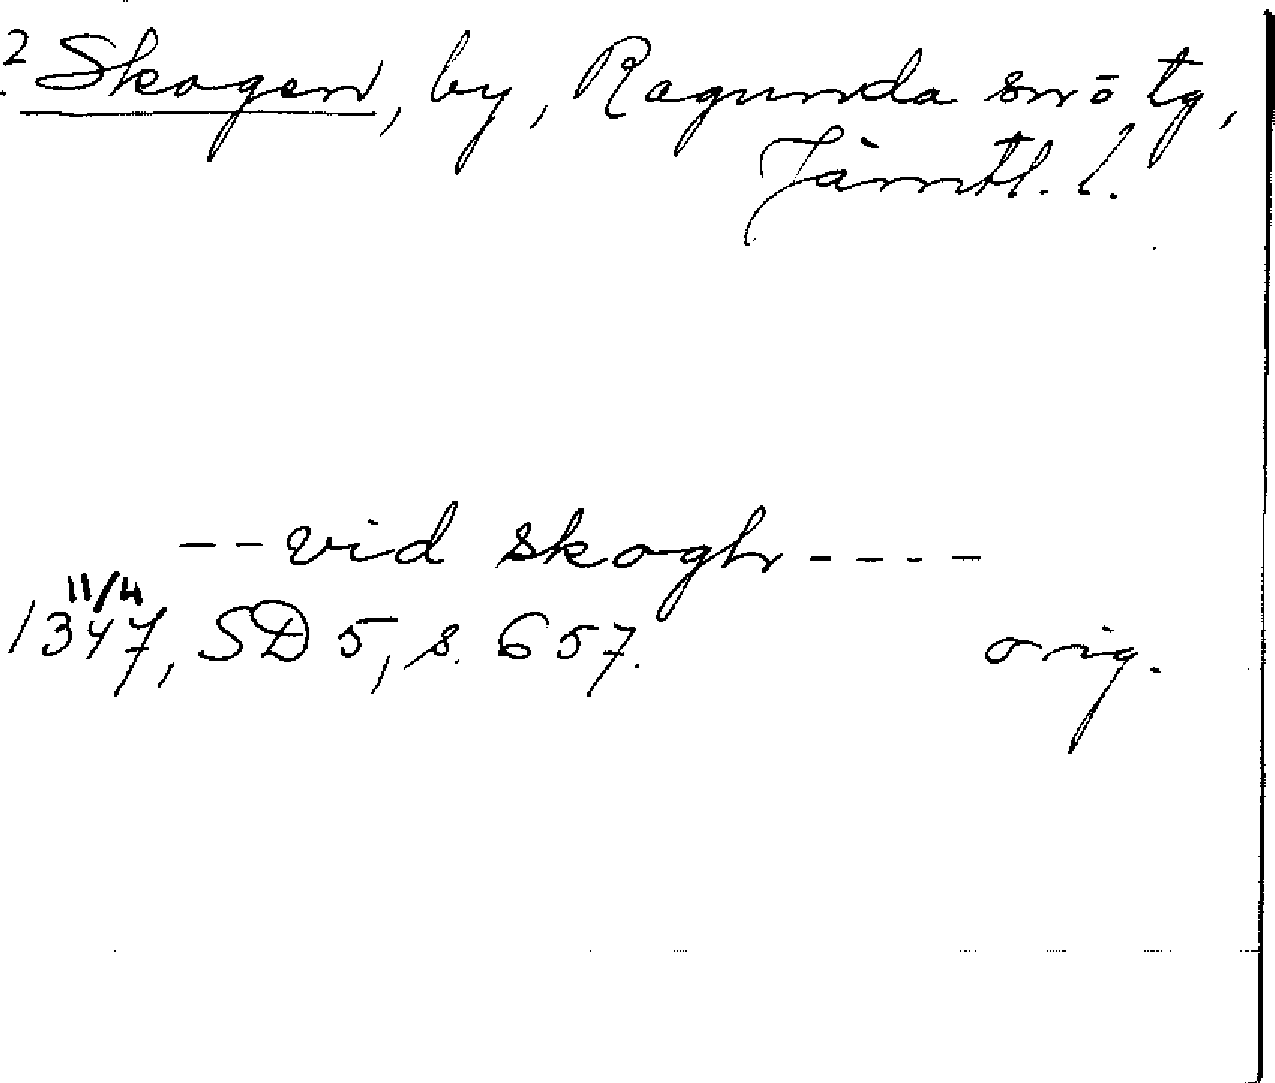 2 Skogen, by, Ragunda sn o tg,
Jämtl. l.
--vid skogh----
11/4
1347, SD 5, s. 657. orig.